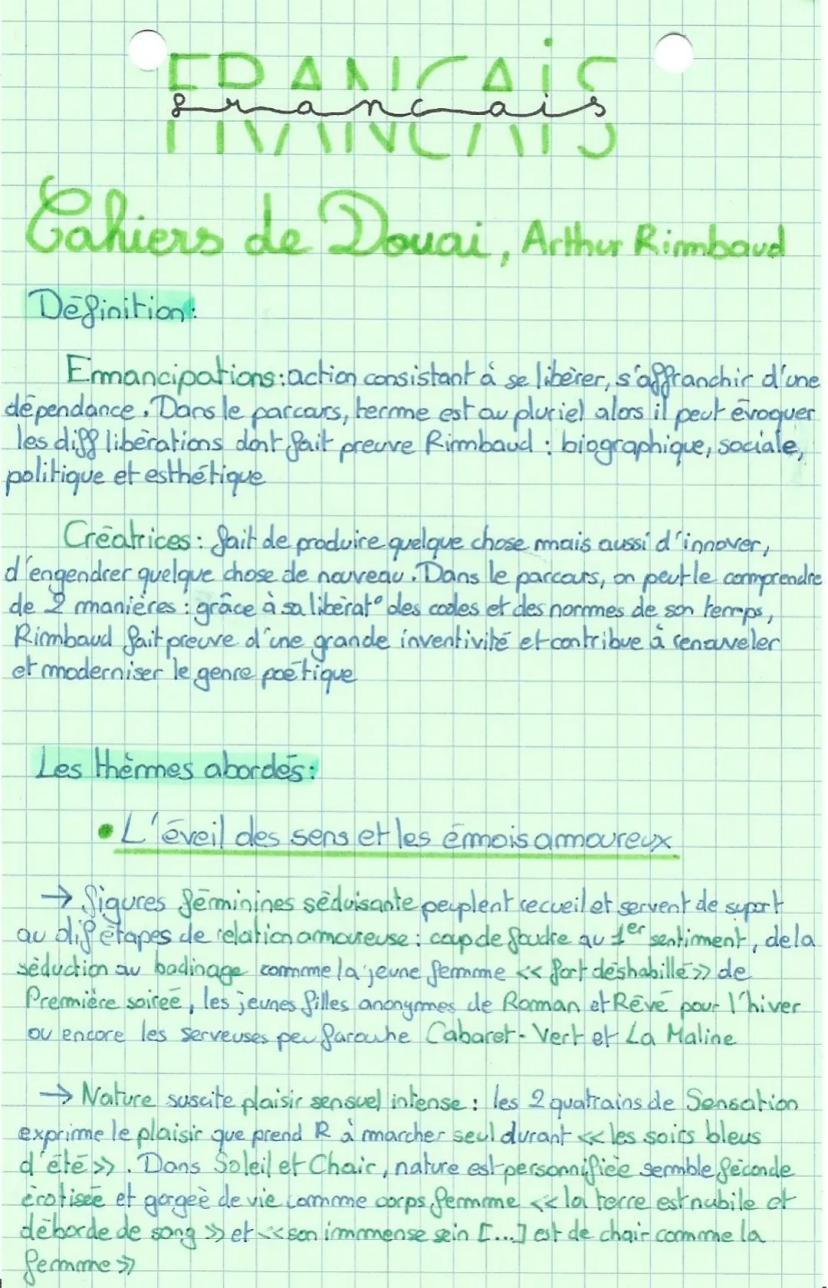 FRANÇAIS
français
Cahiers de Douai, Arthur Rimbaud
Définition:
Emmancipations: action consistant à se libérer, s'affranchir d'une
dépendance. Dans le parcours, terme est au pluriel alors il peut évoquer
les diff libérations dont fait preuve Rimbaud : biographique, sociale,
politique et esthétique
Créatrices: fait de produire quelque chose mais aussi d'innover,
d'engendrer quelque chose de nouveau. Dans le parcours, on peut le comprendre
de 2 manières : grâce à sa libérat° des codes et des normes de son temps,
Rimbaud fait preuve d'une grande inventivité et contribue à renouveler
et moderniser le genre poétique
Les thèmes abordés:
• L'éveil des sens et les émois amoureux
→ figures féminines séduisante peuplent recueil et servent de suport
au dif étapes de relation amoureuse : coup de foudre au 1er sentiment, de la
séduction au badinage comme la jeune femme << fort déshabillé >> de
Première soirée, les jeunes filles anonymes de Roman et Rêvé pour l'hiver
ou encore les serveuses peu farouhe Cabaret-Vert et La Maline
→ Nature suscite plaisir sensuel intense : les 2 quatrains de Sensation
exprime le plaisir que prend R à marcher seul durant << les soirs bleus
d'été >>. Dans Soleil et Chair, nature est personnifiée semble féconde
érotisée et gorgée de vie comme corps femme << la terre est nubile et
déborde de sang >> et << son immense sein [...] est de chair comme la
femme >>